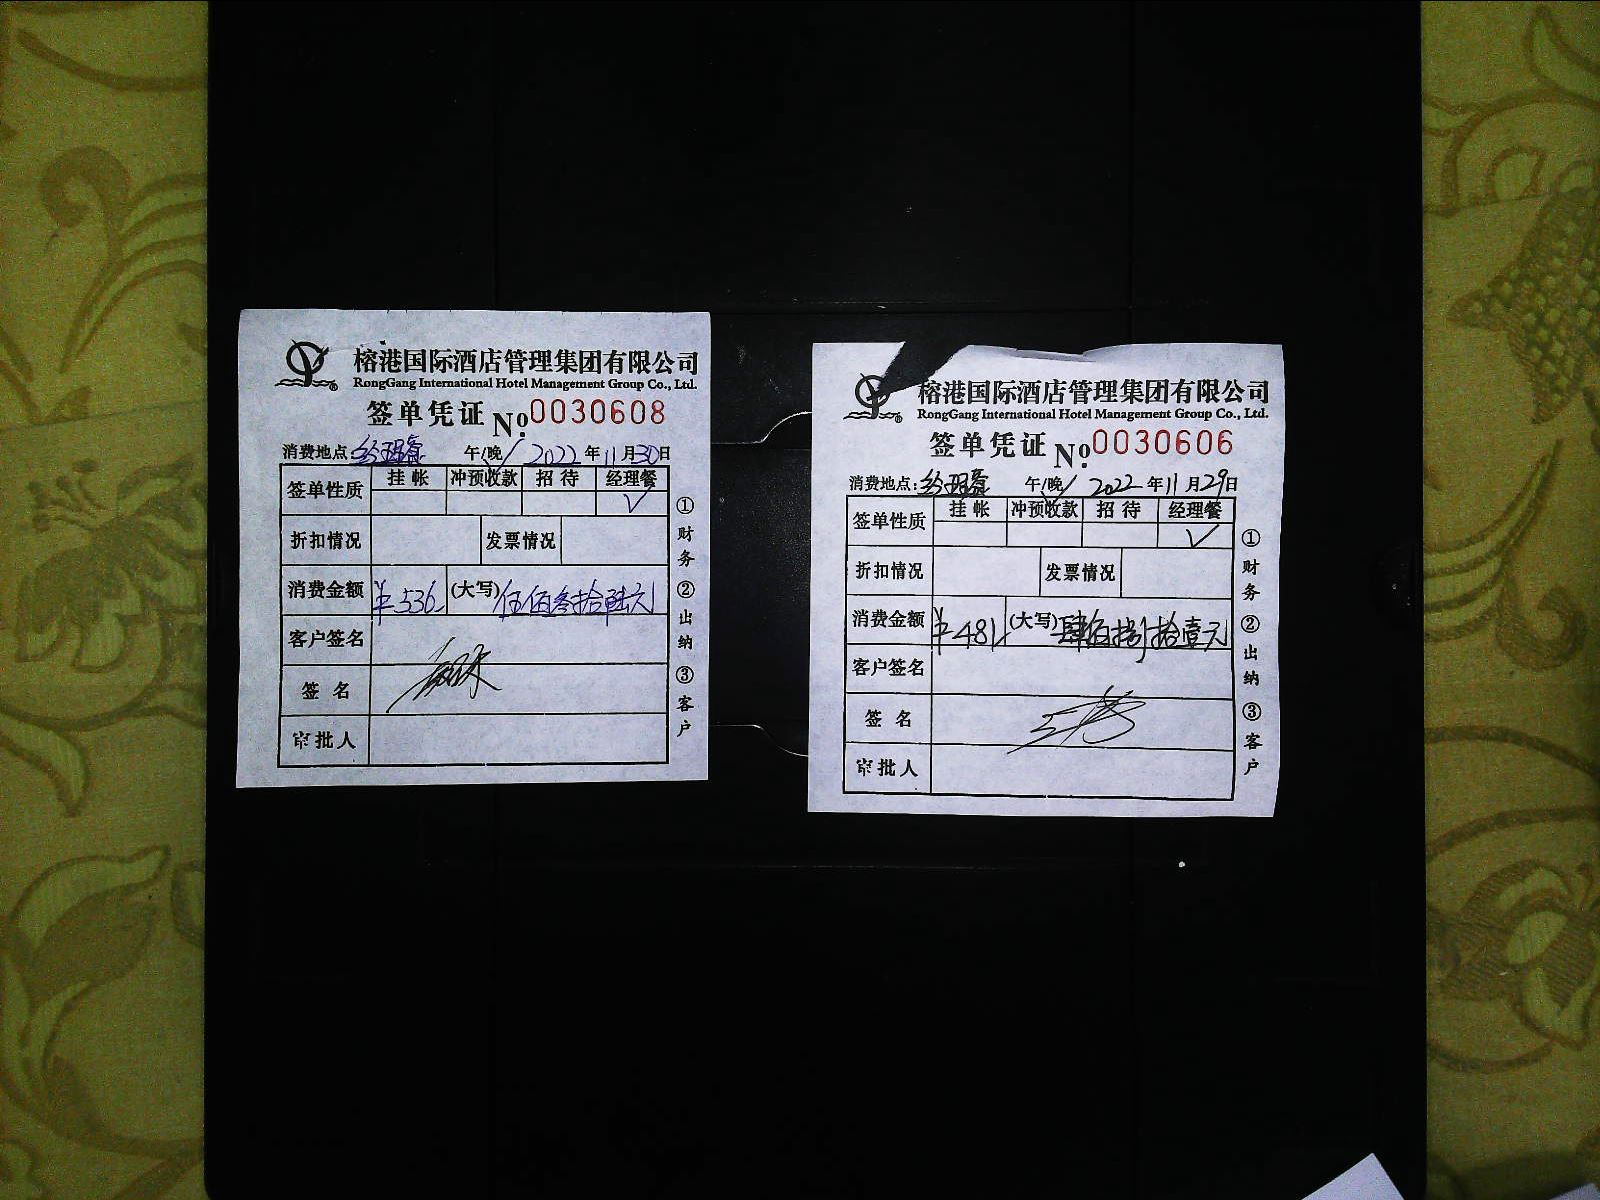 榕港国际酒店管理集团有限公司
RongGang International Hotel Management Group Co., Ltd.
签单凭证 No.0030608
消费地点:经理餐 午/晚 ✓ 2022年11月30日
签单性质 挂帐 冲预收款 招待 经理餐
✓
折扣情况 发票情况
消费金额 ¥536 (大写)伍佰叁拾陆元
客户签名
签名
审批人
①财务②出纳③客户
榕港国际酒店管理集团有限公司
RongGang International Hotel Management Group Co., Ltd.
签单凭证 No.0030606
消费地点:经理餐 午/晚 ✓ 2022年11月29日
签单性质 挂帐 冲预收款 招待 经理餐
✓
折扣情况 发票情况
消费金额 ¥481 (大写)肆佰捌拾壹元
客户签名
签名
审批人
①财务②出纳③客户